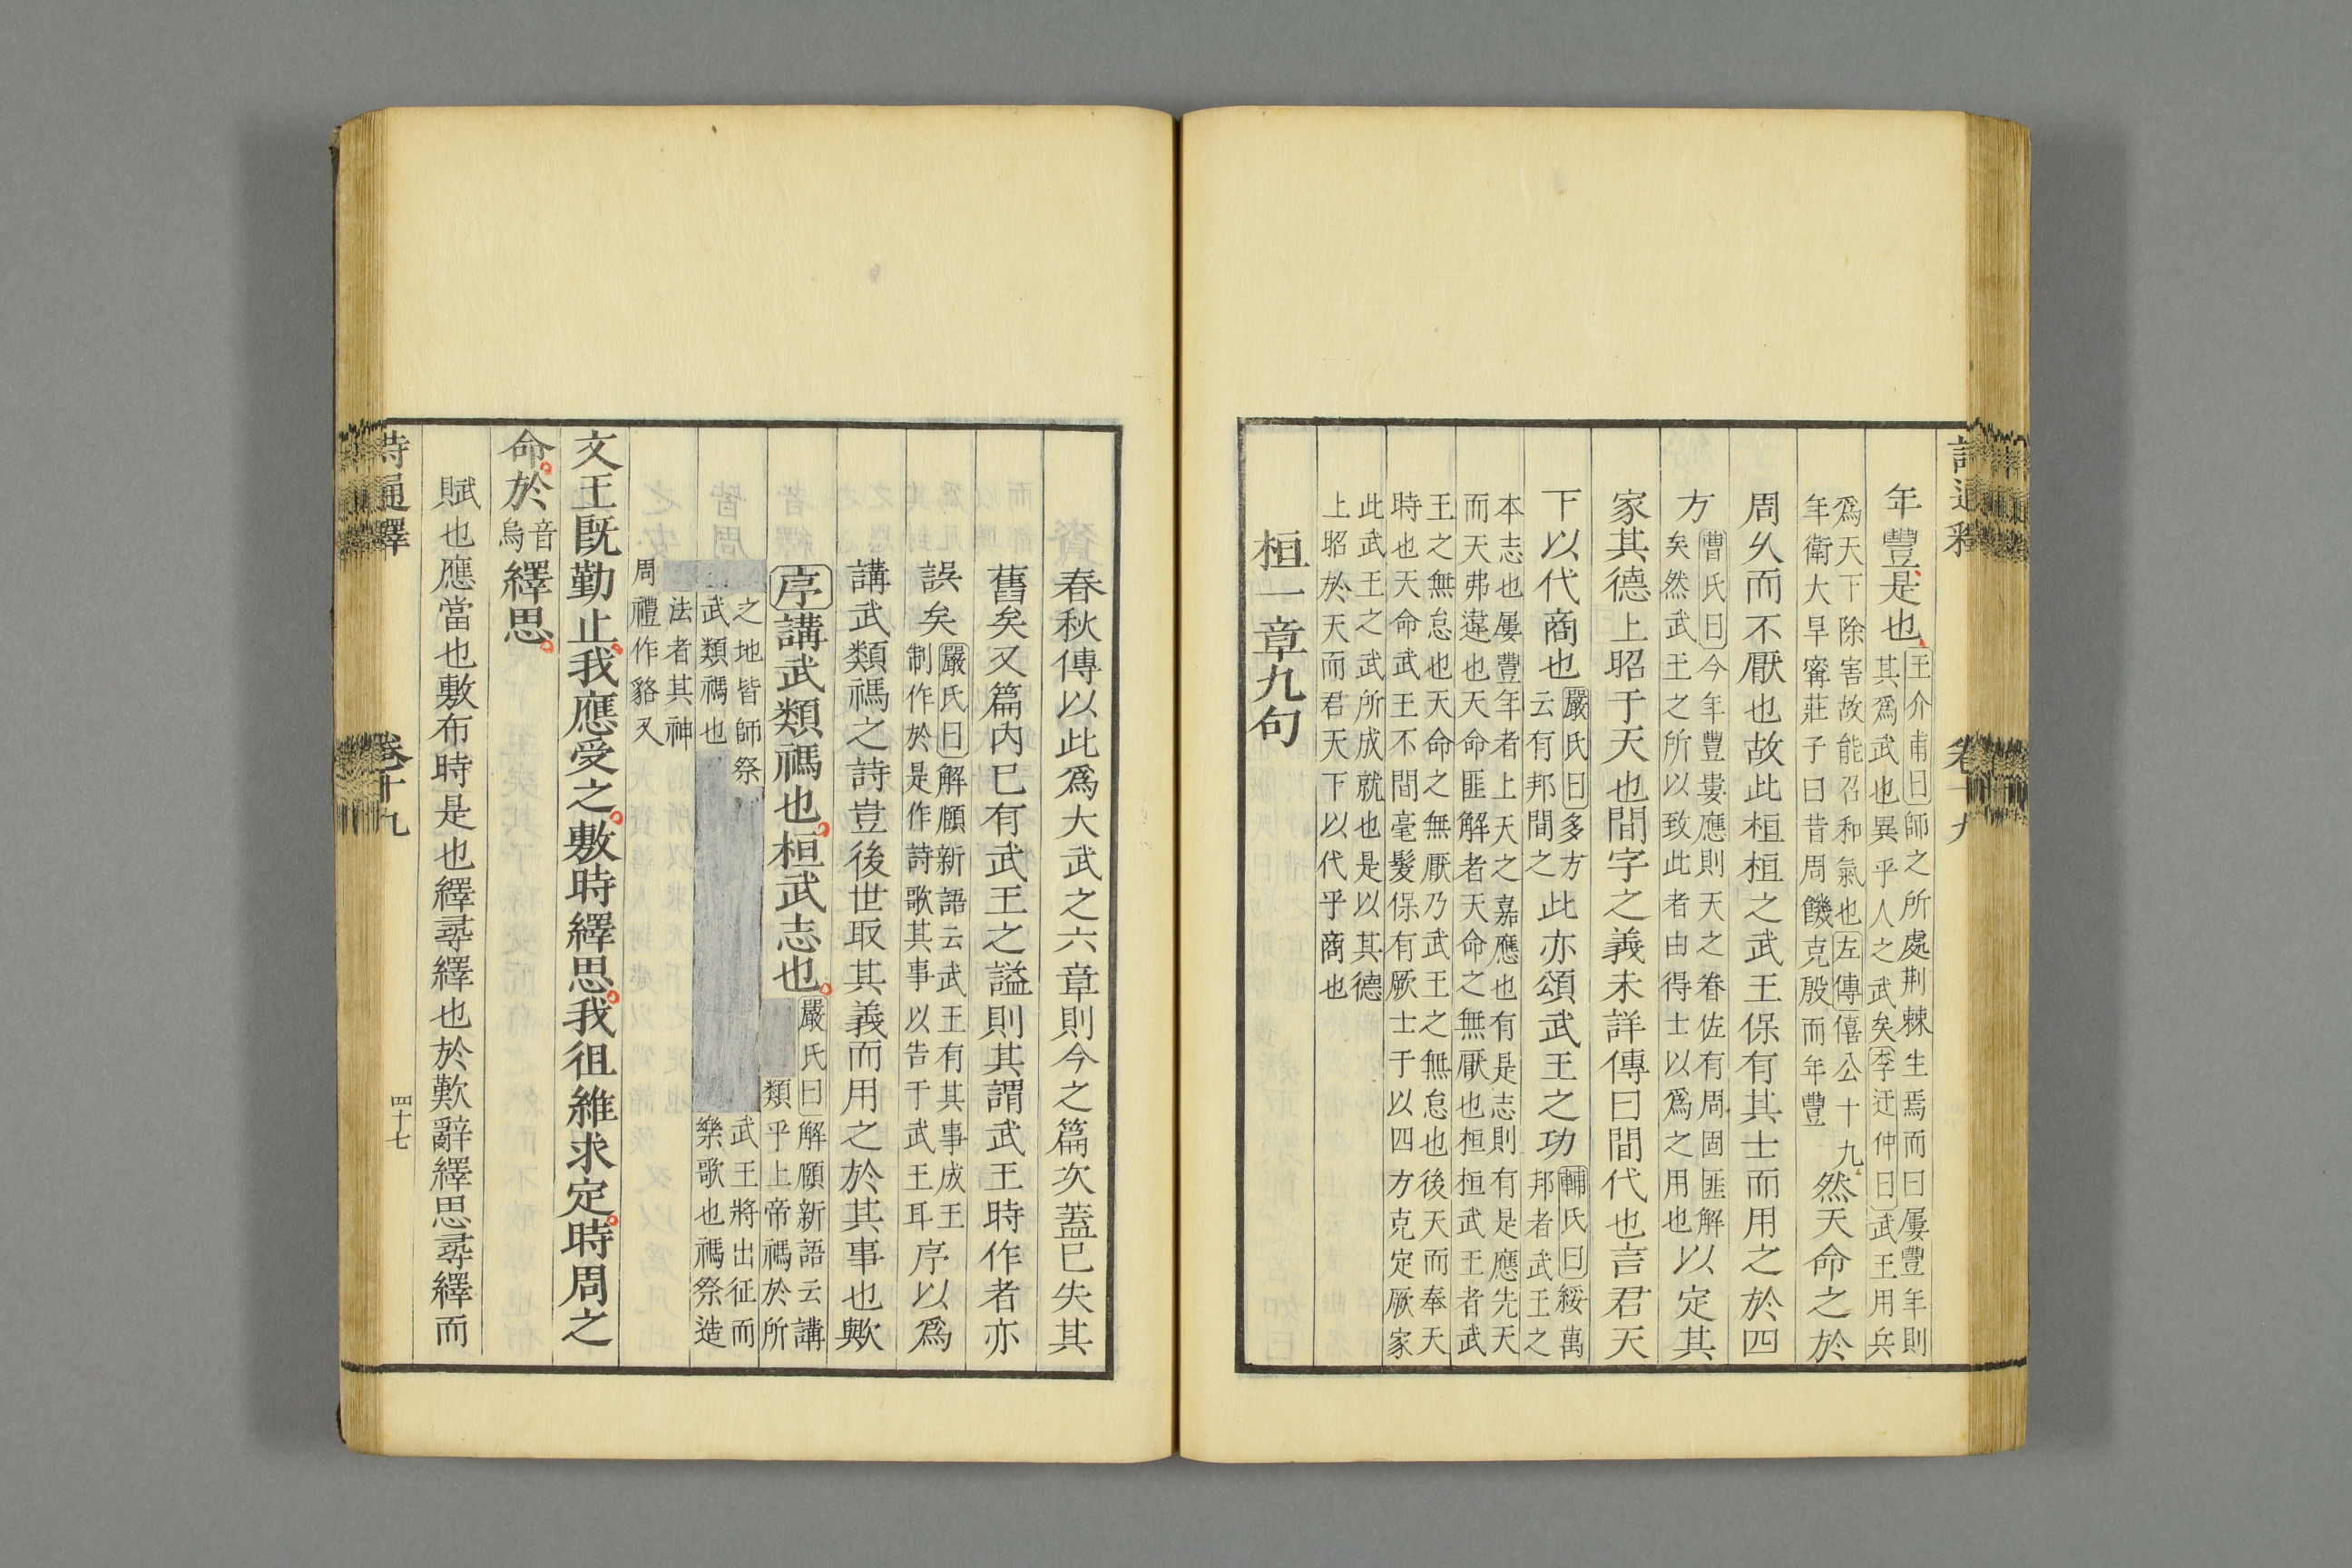 詩通釋 卷十九
年豐是也王介甫曰師之所處荆棘生焉而曰屢豐年則
其爲武也異乎人之武矣李迂仲曰武王用兵
爲天下除害故能召和氣也左傳僖公十九
年衛大旱甯莊子曰昔周饑克殷而年豐然天命之於
周久而不厭也故此桓桓之武王保有其士而用之於四
方曹氏曰今年豐婁應則天之眷佐有周固匪解
矣然武王之所以致此者由得士以爲之用也以定其
家其德上昭于天也間字之義未詳傳曰間代也言君天
下以代商也嚴氏曰多方云有邦間之此亦頌武王之功輔氏曰綏萬
邦者武王之
本志也屢豐年者上天之嘉應也有是志則有是應先天
而天弗違也天命匪解者天命之無厭也桓桓武王者武
王之無怠也天命之無厭乃武王之無怠也後天而奉天
時也天命武王不間毫髮保有厥士于以四方克定厥家
此武王之武所成就也是以其德
上昭於天而君天下以代乎商也
桓一章九句
春秋傳以此爲大武之六章則今之篇次蓋已失其
舊矣又篇內已有武王之謚則其謂武王時作者亦
誤矣嚴氏曰解頤新語云武王有其事成王
制作於是作詩歌其事以告于武王耳序以爲
講武類禡之詩豈後世取其義而用之於其事也歟
序講武類禡也桓武志也嚴氏曰解頤新語云講
類乎上帝禡於所
之地皆師祭 武王將出征而
武類禡也 樂歌也禡祭造
法者其神
周禮作貉又
文王既勤止我應受之敷時繹思我徂維求定時周之
命於音烏繹思
賦也應當也敷布時是也繹尋繹也於歎辭繹思尋繹而
詩通釋 卷十九 四十七